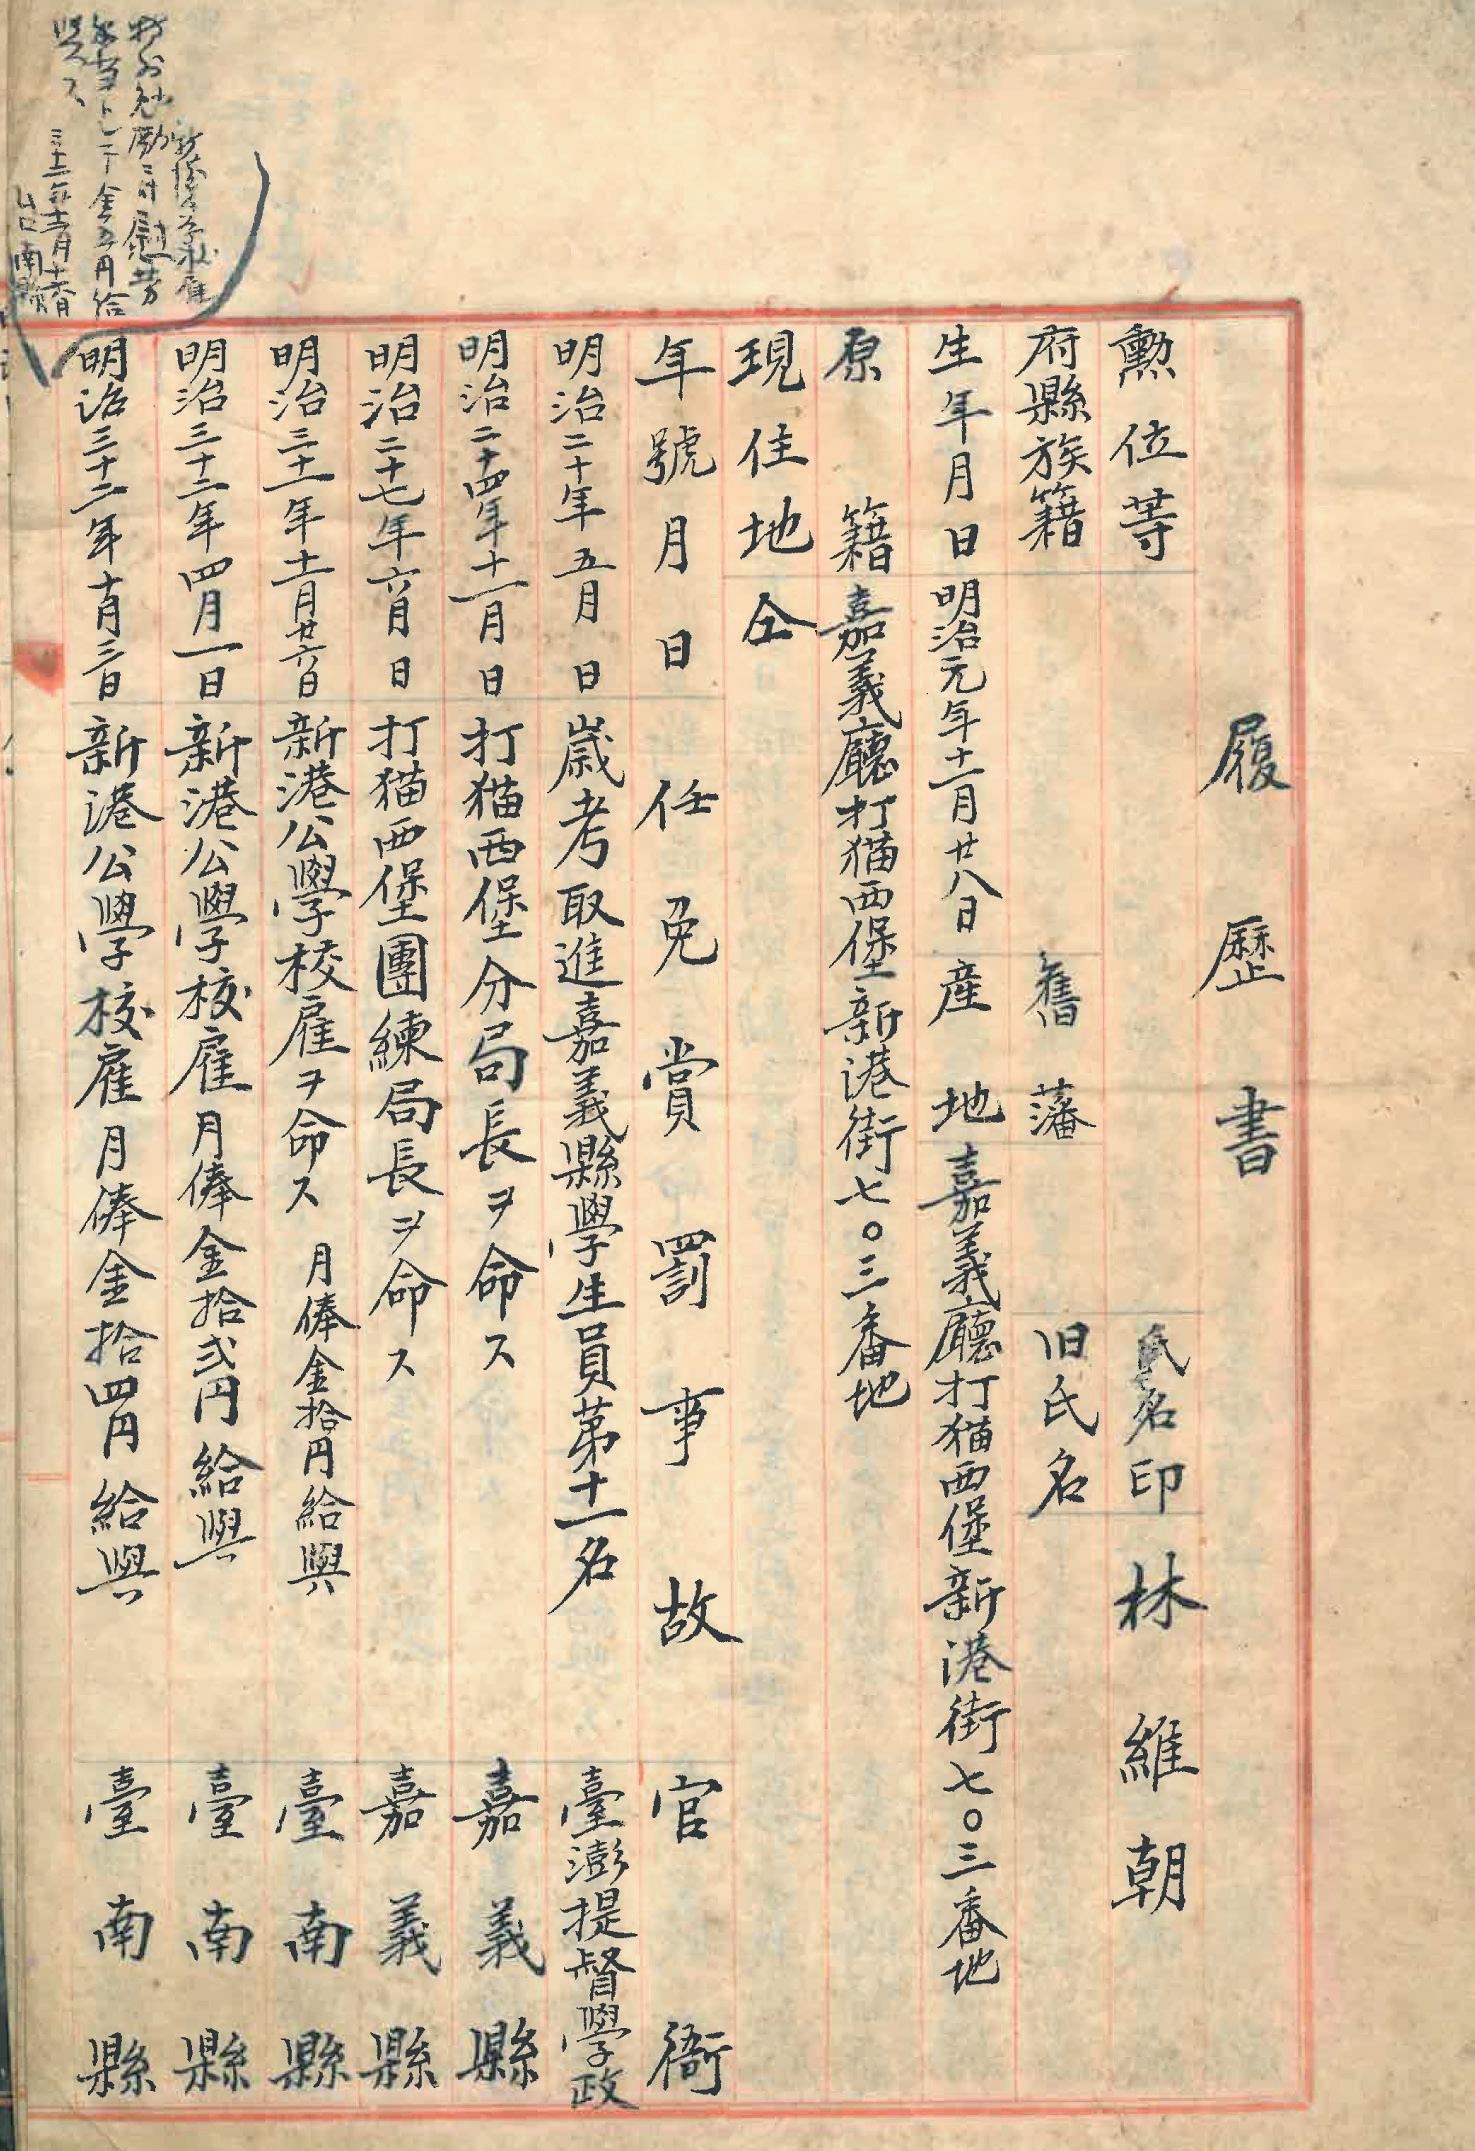 履歷書
勲位等 氏名印 林維朝
府縣族籍 舊藩 旧氏名
生年月日 明治元年十一月廿八日 産地 嘉義廳打猫西堡新港街七〇三番地
原籍 嘉義廳打猫西堡新港街七〇三番地
現住地 仝
年號月日 任免賞罰事故 官衙
明治二十年五月 日 歳考取進嘉義縣學生員第十一名 臺澎提督學政
明治二十四年十一月 日 打猫西堡分局長ヲ命ス 嘉義縣
明治二十七年六月 日 打猫西堡團練局長ヲ命ス 嘉義縣
明治三十一年十一月廿六日 新港公學校雇ヲ命ス 月俸金拾円給與 臺南縣
明治三十二年四月一日 新港公學校雇月俸金拾弍円給與 臺南縣
明治三十二年十月三日 新港公學校雇月俸金拾四円給與 臺南縣
新港公学校雇
慰労
金五円給
台南縣